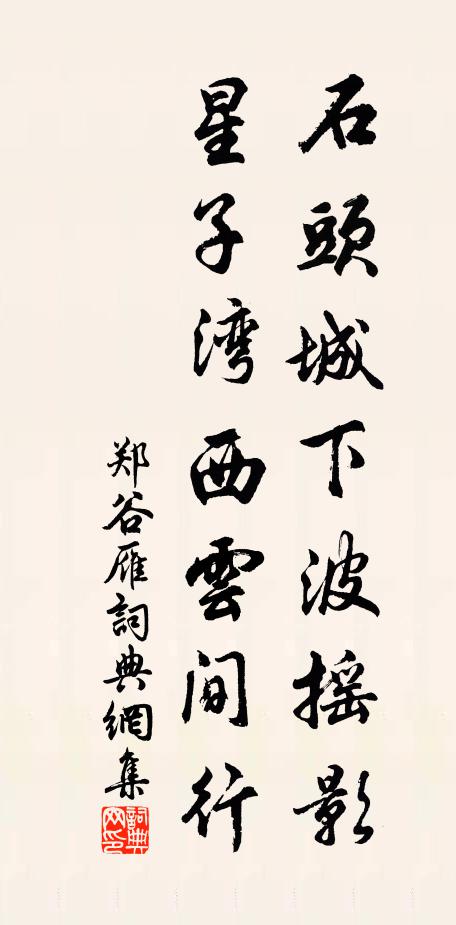 石頭城下波摇影
星子湾西雲間行
郑谷雁詞典網集
詞典網印